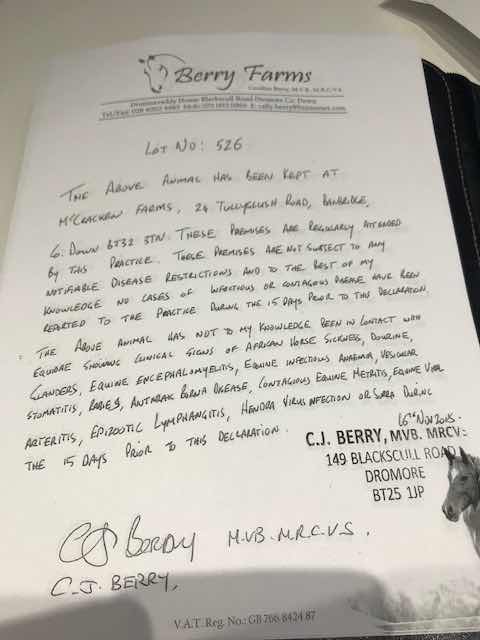 Berry Farms
Caroline Berry, M.V.B. M.R.C.V.S.
House Blackscull Road Dromore Co. Down
Tel/Fax:
LOT NO: 526
THE ABOVE ANIMAL HAS BEEN KEPT AT
McCRACKEN FARMS, 24 TULLYGLUSH ROAD, BANBRIDGE,
Co. DOWN BT32 3TN. THESE PREMISES ARE REGULARLY ATTENDED
BY THIS PRACTICE. THESE PREMISES ARE NOT SUBJECT TO ANY
NOTIFIABLE DISEASE RESTRICTIONS AND TO THE BEST OF MY
KNOWLEDGE NO CASES OF INFECTIOUS OR CONTAGIOUS DISEASE HAVE BEEN
REPORTED TO THE PRACTICE DURING THE 15 DAYS PRIOR TO THIS DECLARATION.
THE ABOVE ANIMAL HAS NOT TO MY KNOWLEDGE BEEN IN CONTACT WITH
EQUIDAE SHOWING CLINICAL SIGNS OF AFRICAN HORSE SICKNESS, DOURINE,
GLANDERS, EQUINE ENCEPHALOMYELITIS, EQUINE INFECTIOUS ANAEMIA, VESICULAR
STOMATITIS, RABIES, ANTHRAX BORNA DISEASE, CONTAGIOUS EQUINE METRITIS, EQUINE VIRAL
ARTERITIS, EPIZOOTIC LYMPHANGITIS, HENDRA VIRUS INFECTION OR SURRA DURING
THE 15 DAYS PRIOR TO THIS DECLARATION.
16th NOV 2018.
C.J. BERRY, MVB. MRCVS
149 BLACKSCULL ROAD
DROMORE
BT25 1JP
CJ BERRY M.V.B. M.R.C.V.S.
C.J. BERRY,
V.A.T. Reg. No.: GB 766 8424 87